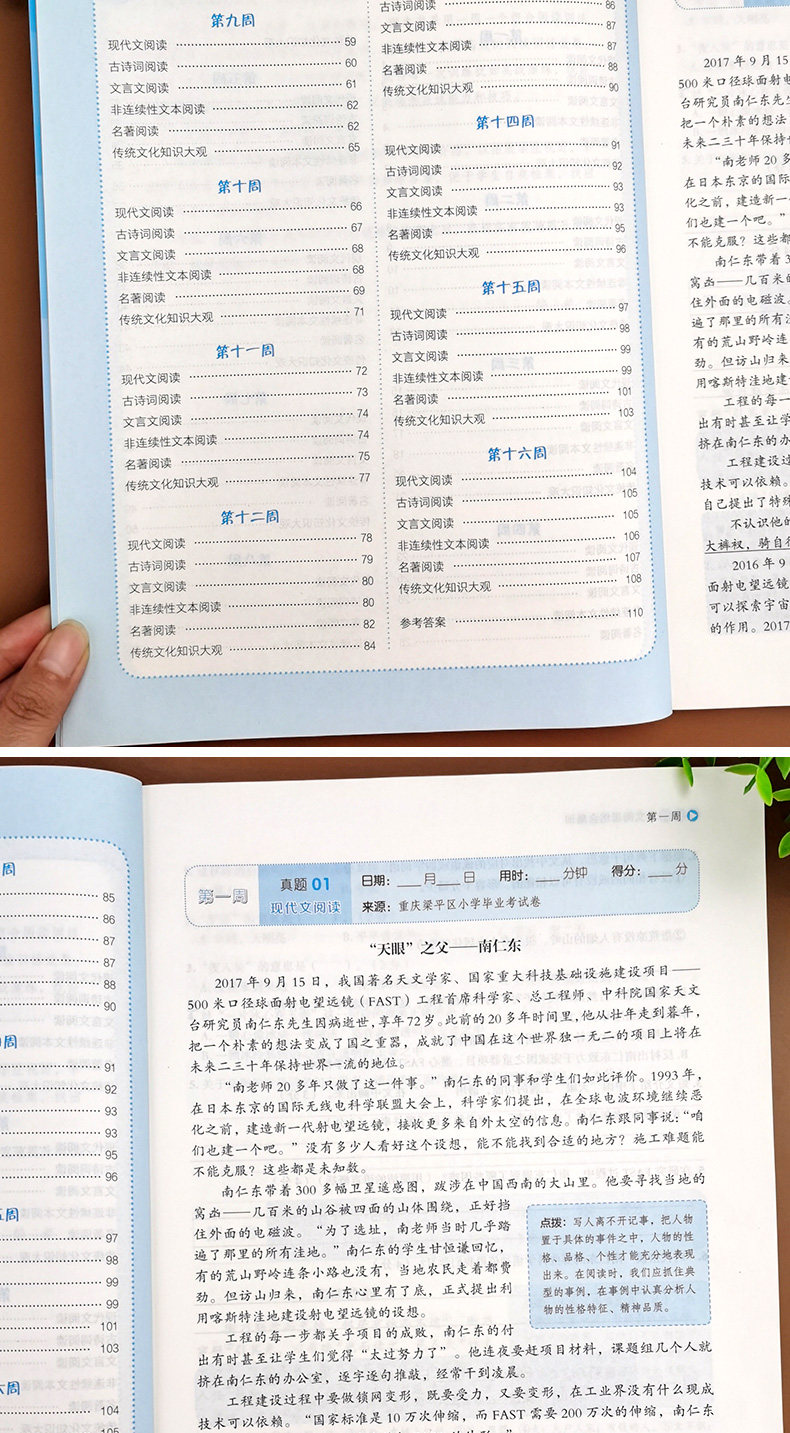 第九周
现代文阅读 59
古诗词阅读 60
文言文阅读 61
非连续性文本阅读 62
名著阅读 62
传统文化知识大观 65
第十周
现代文阅读 66
古诗词阅读 67
文言文阅读 68
非连续性文本阅读 68
名著阅读 69
传统文化知识大观 71
第十一周
现代文阅读 72
古诗词阅读 73
文言文阅读 74
非连续性文本阅读 74
名著阅读 75
传统文化知识大观 77
第十二周
现代文阅读 78
古诗词阅读 79
文言文阅读 80
非连续性文本阅读 80
名著阅读 82
传统文化知识大观 84
古诗词阅读 86
文言文阅读 87
非连续性文本阅读 87
名著阅读 88
传统文化知识大观 90
第十四周
现代文阅读 91
古诗词阅读 92
文言文阅读 93
非连续性文本阅读 93
名著阅读 95
传统文化知识大观 96
第十五周
现代文阅读 97
古诗词阅读 98
文言文阅读 99
非连续性文本阅读 99
名著阅读 101
传统文化知识大观 103
第十六周
现代文阅读 104
古诗词阅读 105
文言文阅读 105
非连续性文本阅读 106
名著阅读 107
传统文化知识大观 108
参考答案 110
2017年9月15
500米口径球面射电
台研究员南仁东先生
把一个朴素的想法
未来二三十年保持
“南老师20多
在日本东京的国际
化之前，建造新一
们也建一个吧。”
不能克服？这些都
南仁东带着3
窝凼——几百米的
住外面的电磁波。
遍了那里的所有洼
有的荒山野岭连
劲。但访山归来
用喀斯特洼地建
工程的每一
出有时甚至让学
挤在南仁东的办
工程建设过
技术可以依赖。
自己提出了特殊
不认识他的
大裤衩，骑自行
2016年9
面射电望远镜
可以探索宇宙
的作用。2017
周
85
86
87
87
88
90
周
91
92
93
93
95
96
五周
97
98
99
99
101
103
六周
104
105
第一周
第一周
真题 01
现代文阅读
日期：___月___日 用时：___分钟 得分：___分
来源：重庆梁平区小学毕业考试卷
“天眼”之父——南仁东
2017年9月15日，我国著名天文学家、国家重大科技基础设施建设项目——
500米口径球面射电望远镜（FAST）工程首席科学家、总工程师、中科院国家天文
台研究员南仁东先生因病逝世，享年72岁。此前的20多年时间里，他从壮年走到暮年，
把一个朴素的想法变成了国之重器，成就了中国在这个世界独一无二的项目上将在
未来二三十年保持世界一流的地位。
“南老师20多年只做了这一件事。”南仁东的同事和学生们如此评价。1993年，
在日本东京的国际无线电科学联盟大会上，科学家们提出，在全球电波环境继续恶
化之前，建造新一代射电望远镜，接收更多来自外太空的信息。南仁东跟同事说：“咱
们也建一个吧。”没有多少人看好这个设想，能不能找到合适的地方？施工难题能
不能克服？这些都是未知数。
南仁东带着300多幅卫星遥感图，跋涉在中国西南的大山里。他要寻找当地的
窝凼——几百米的山谷被四面的山体围绕，正好挡
住外面的电磁波。“为了选址，南老师当时几乎踏
遍了那里的所有洼地。”南仁东的学生甘恒谦回忆，
有的荒山野岭连条小路也没有，当地农民走着都费
劲。但访山归来，南仁东心里有了底，正式提出利
用喀斯特洼地建设射电望远镜的设想。
点拨：写人离不开记事，把人物
置于具体的事件之中，人物的性
格、品格、个性才能充分地表现
出来。在阅读时，我们应抓住典
型的事例，在事例中认真分析人
物的性格特征、精神品质。
工程的每一步都关乎项目的成败，南仁东的付
出有时甚至让学生们觉得“太过努力了”。他连夜要赶项目材料，课题组几个人就
挤在南仁东的办公室，逐字逐句推敲，经常干到凌晨。
工程建设过程中要做锁网变形，既要受力，又要变形，在工业界没有什么现成
技术可以依赖。“国家标准是10万次伸缩，而FAST需要200万次的伸缩，南仁东